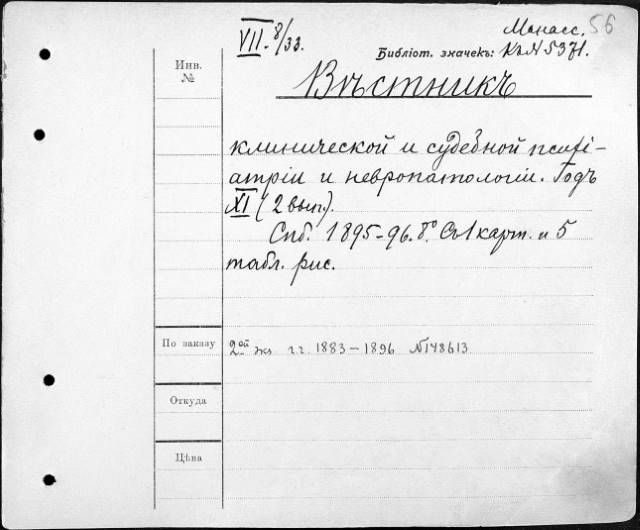 VII. 8/33.
Манасс. 56
Библіот. значекъ: Къ N 5371.
Инв.
№
Вѣстникъ
клинической и судебной психі-
атріи и невропатологіи. Годъ
XI (2 вып.).
Спб. 1895-96. 8°. Съ 1 карт. и 5
табл. рис.
По заказу
2ой экз г.г. 1883-1896 N148613
Откуда
Цѣна